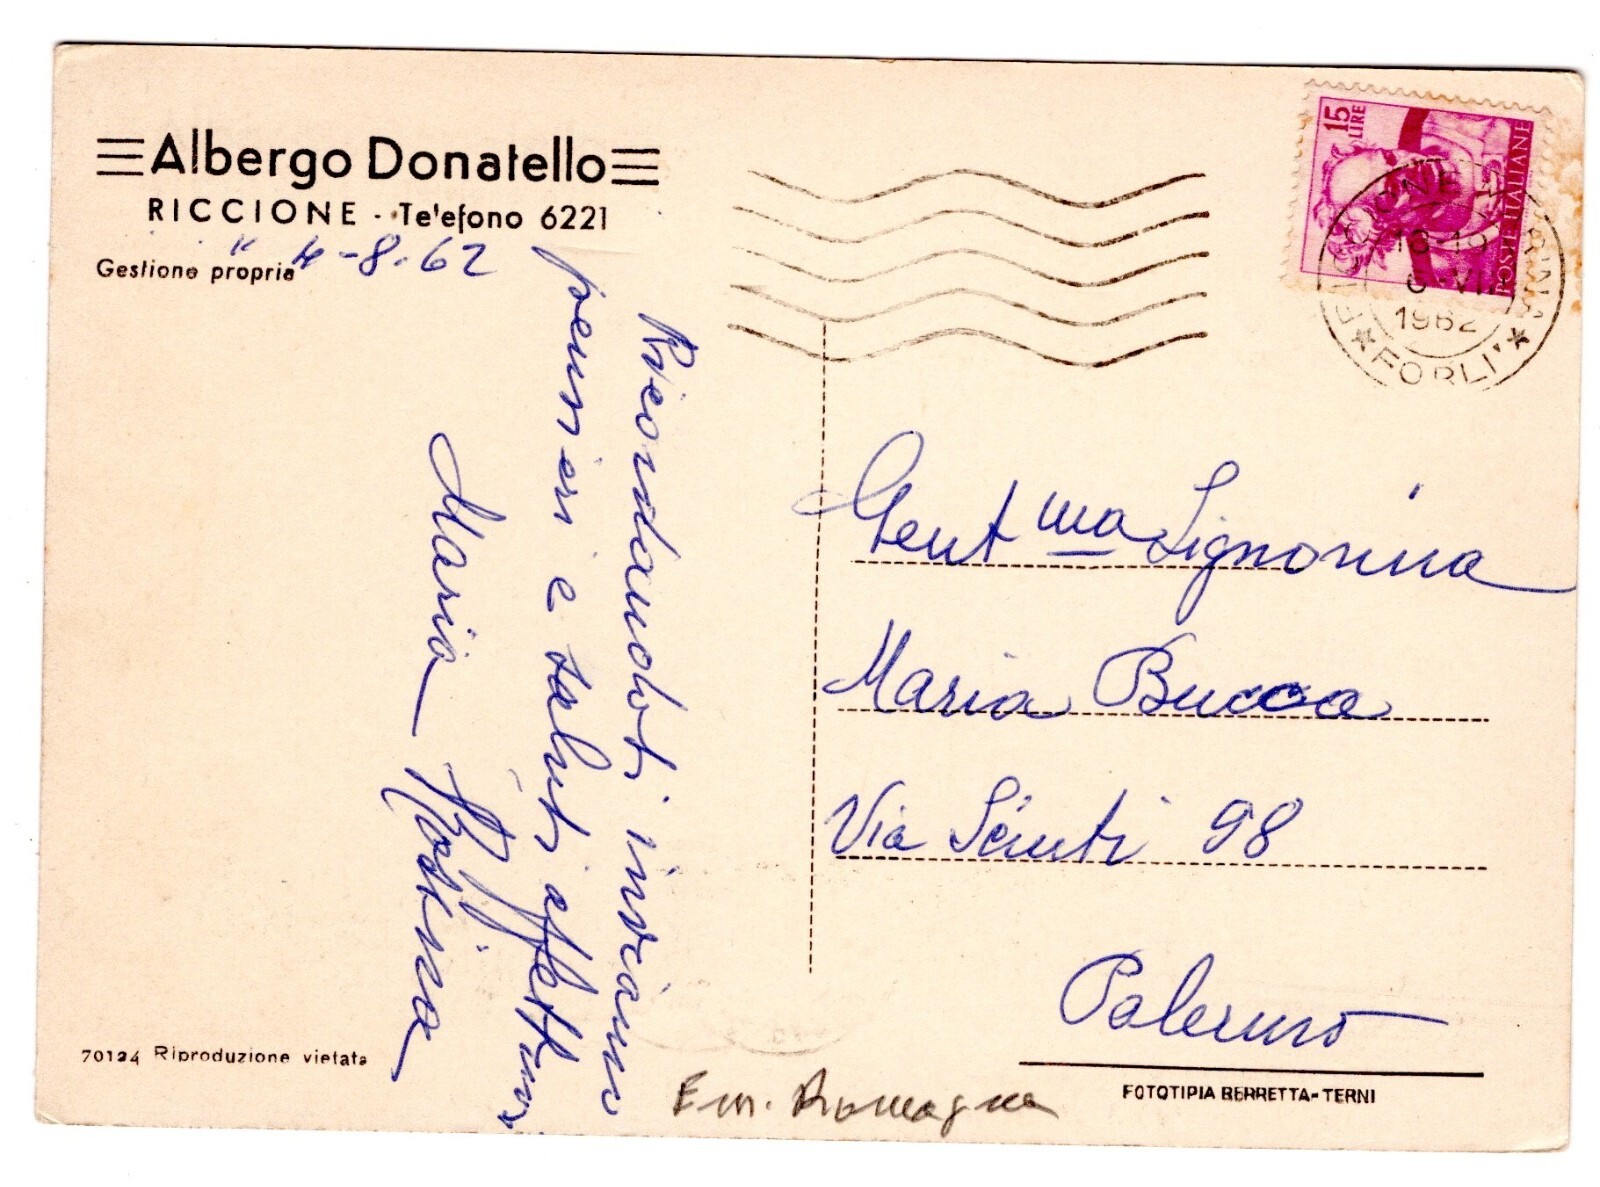 Albergo Donatello
RICCIONE - Telefono 6221
Gestione propria
" 4-8-62
Ricordandoti inviamo
pensieri e saluti affettuosi
Maria Rosina
15 LIRE
POSTE ITALIANE
RICCIONE MARINA
18-19
6-VIII
1962
* FORLI' *
Gent ma Signorina
Maria Bucca
Via Sciuti 98
Palermo
70124 Riproduzione vietata
Em. Romagna
FOTOTIPIA BERRETTA - TERNI